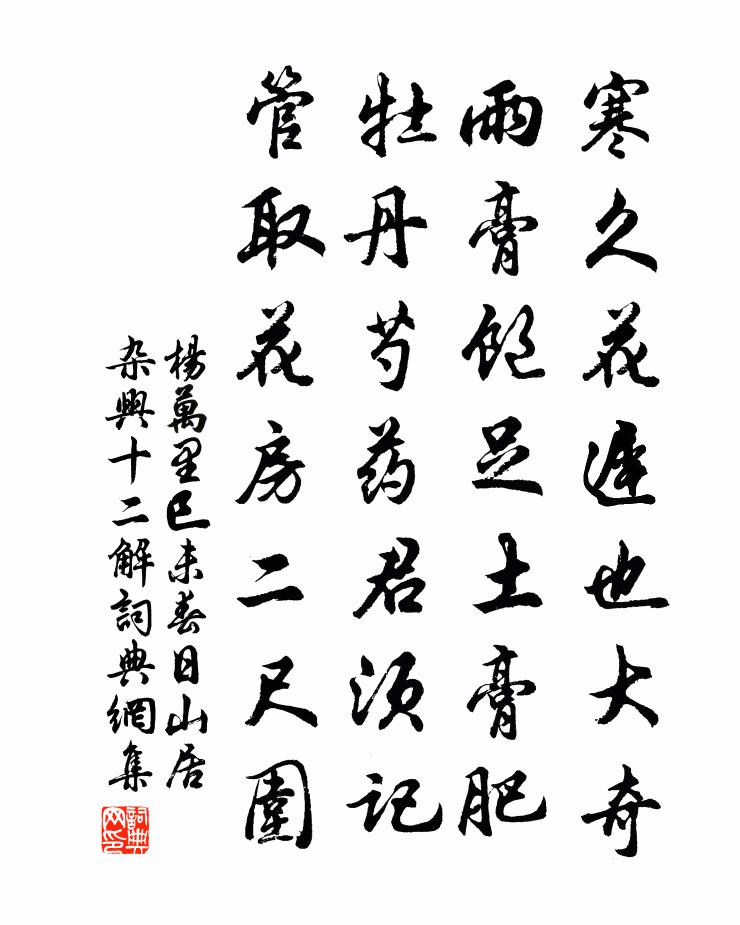 寒久花遲也大奇
雨膏飽足土膏肥
牡丹芍药君須記
管取花房二尺圍
楊萬里巳未春日山居
杂興十二解詞典網集
詞典网印